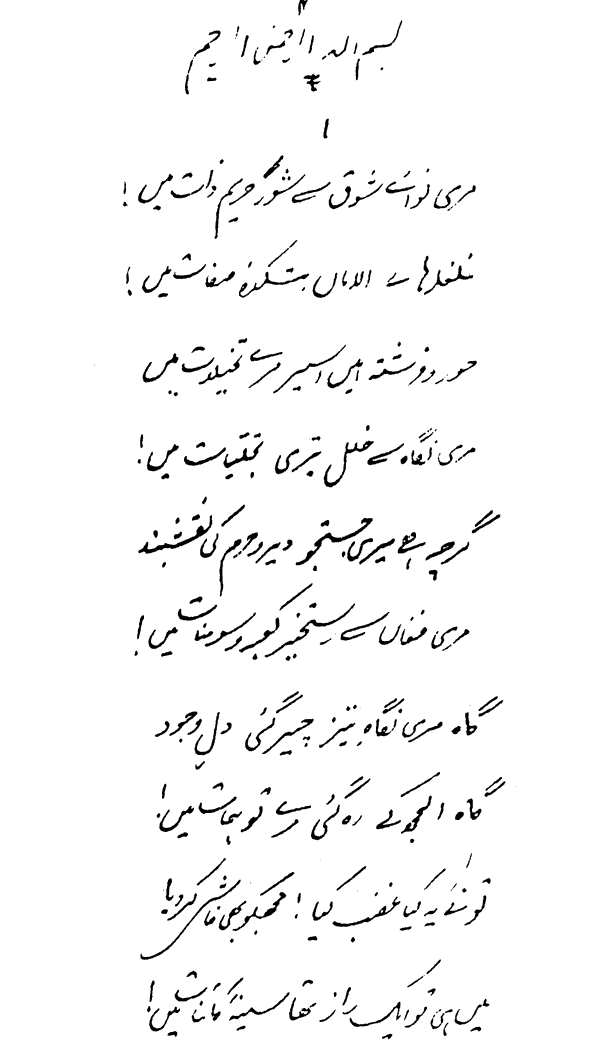 بسم اللہ الرحمن الرحیم
۱
مری نوائے شوق سے شور حریم ذات میں!
غلغلہ ہائے الاماں بتکدۂ صفات میں!
حور و فرشتہ ہیں اسیر مرے تخیلات میں
مری نگاہ سے خلل تیری تجلیات میں!
گرچہ ہے میری جستجو دیر و حرم کی نقشبند
مری فغاں سے رستخیز کعبہ و سومنات میں!
گاہ مری نگاہِ تیز چیر گئی دلِ وجود
گاہ الجھ کے رہ گئی مرے توہمات میں!
تو نے یہ کیا غضب کیا! مجھکو بھی فاش کر دیا
میں ہی تو ایک راز تھا سینۂ کائنات میں!